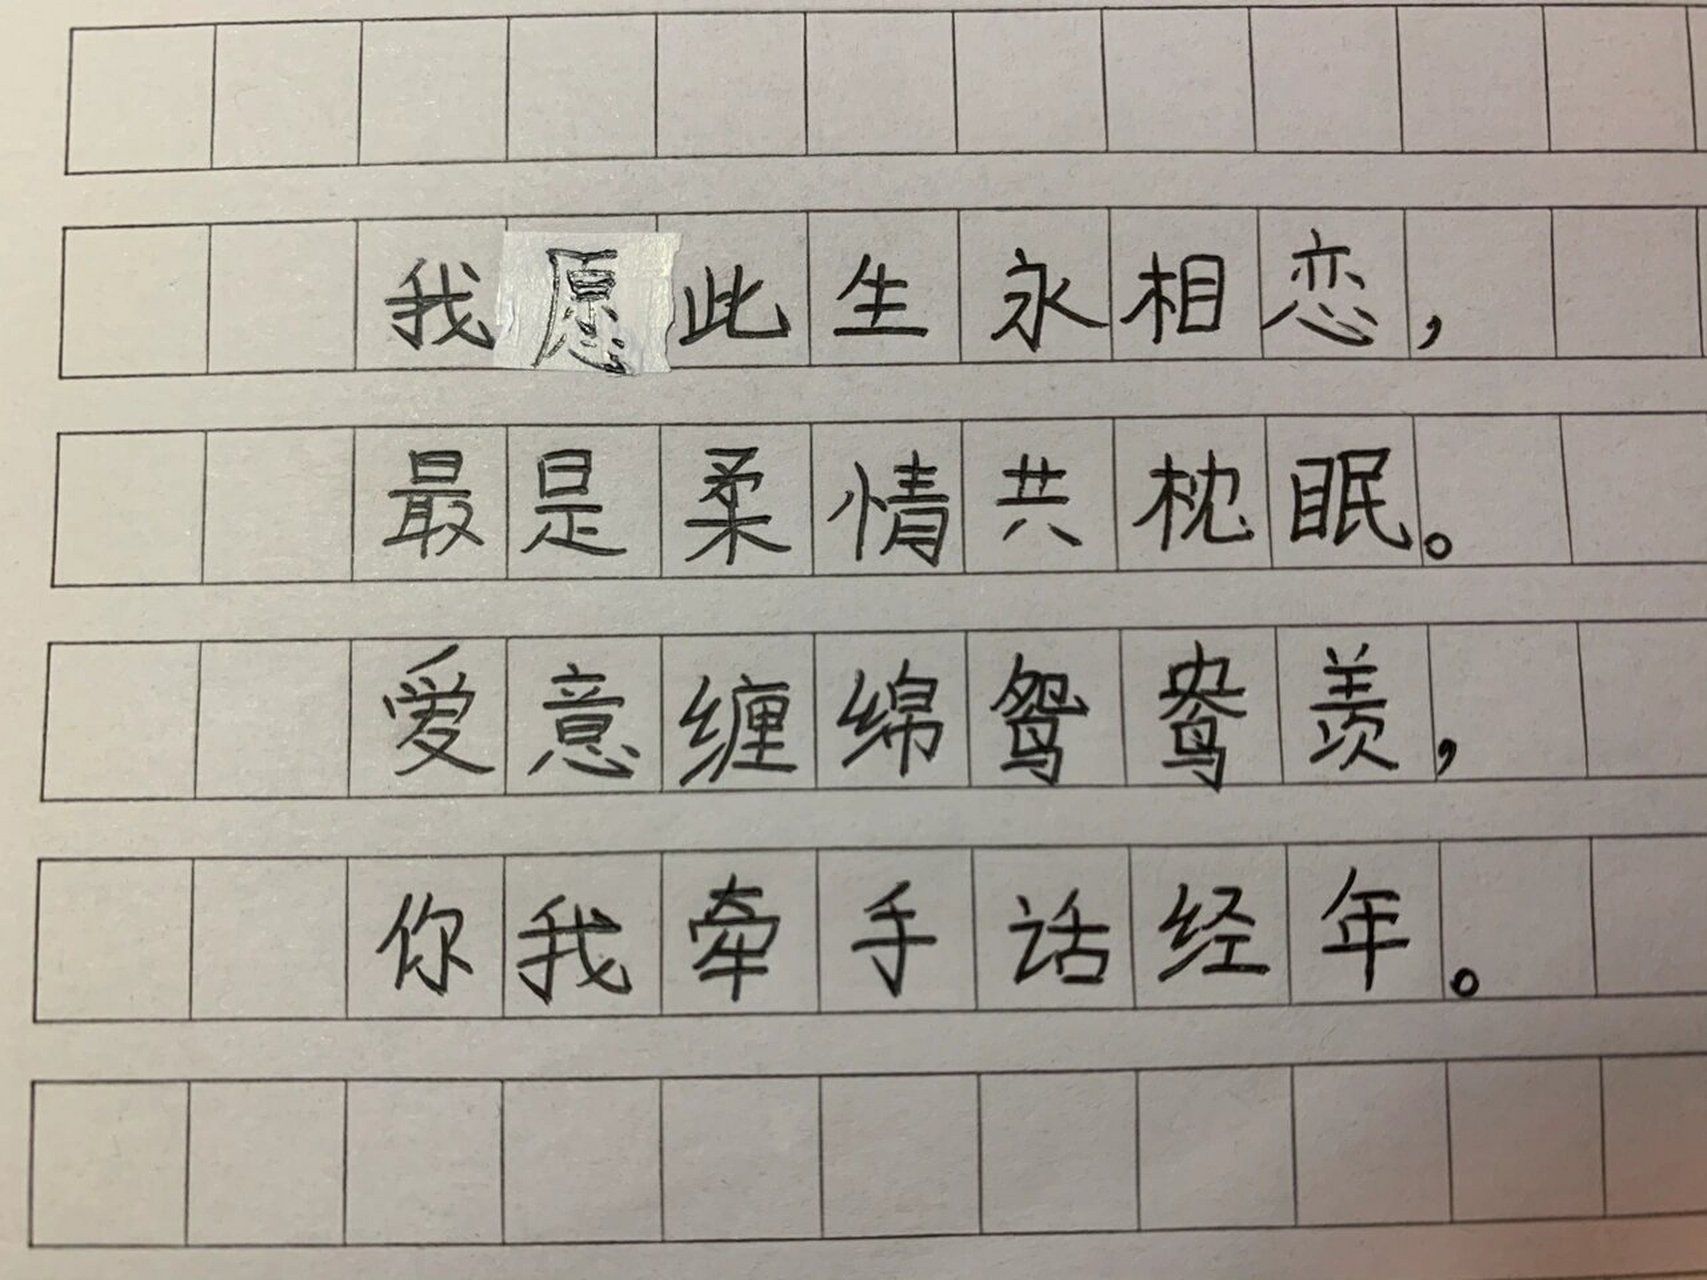 我愿此生永相恋，
最是柔情共枕眠。
爱意缠绵鸳鸯羡，
你我牵手话经年。